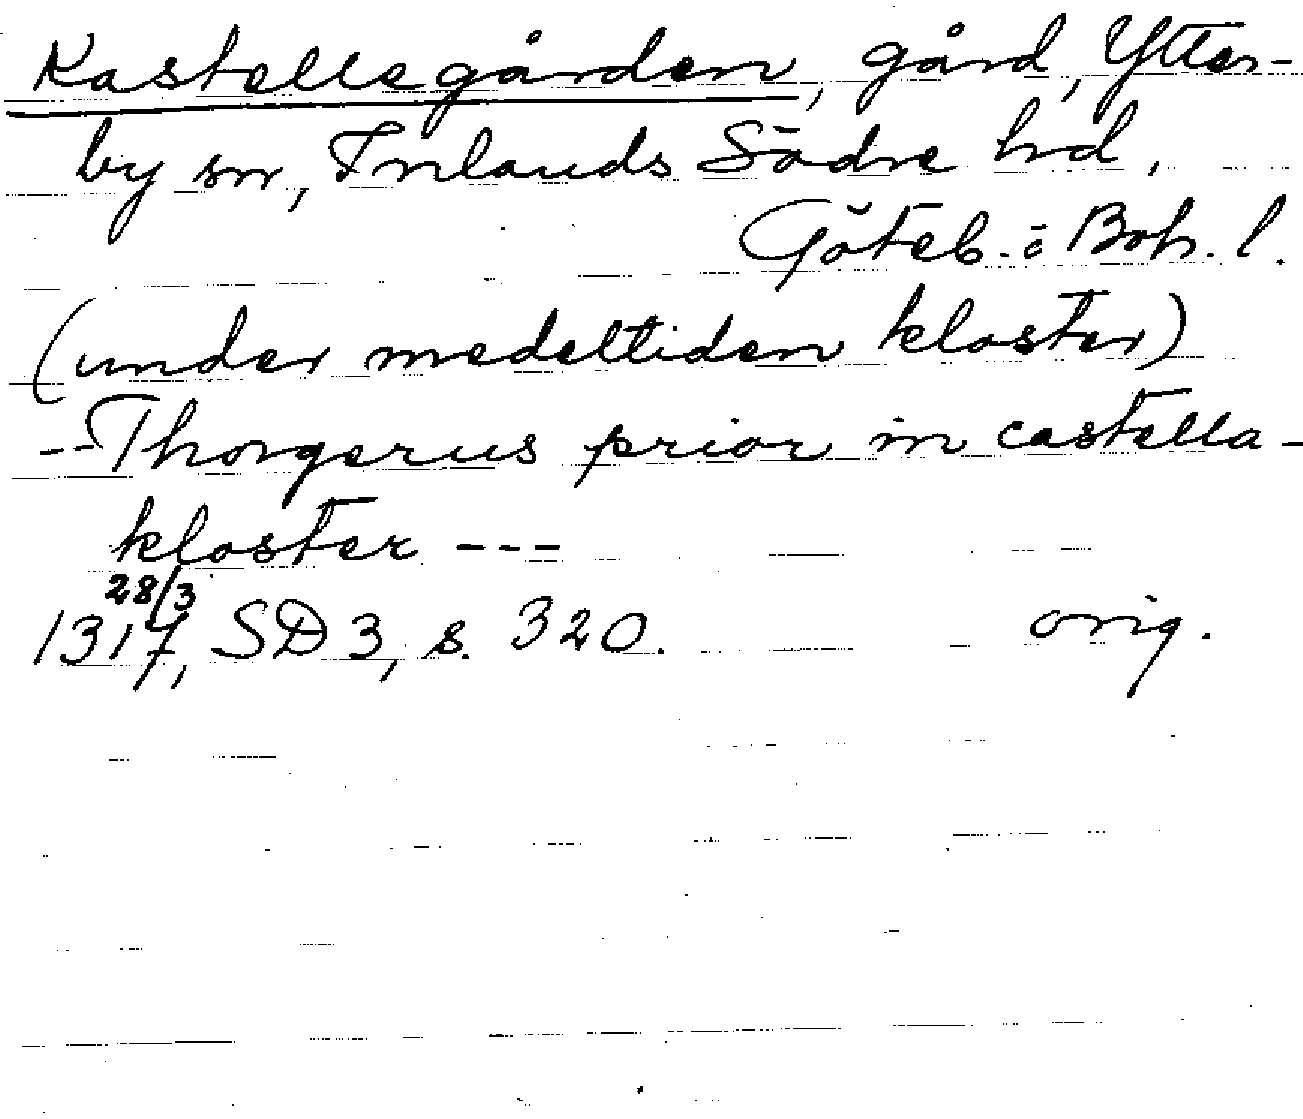 Kastellegården, gård, Ytter-
by sn, Inlands Södre hd,
Göteb. o Boh. l.
(under medeltiden kloster)
--Thorgerus prior in castella-
kloster ---
28/3
1317, SD 3, s. 320. orig.